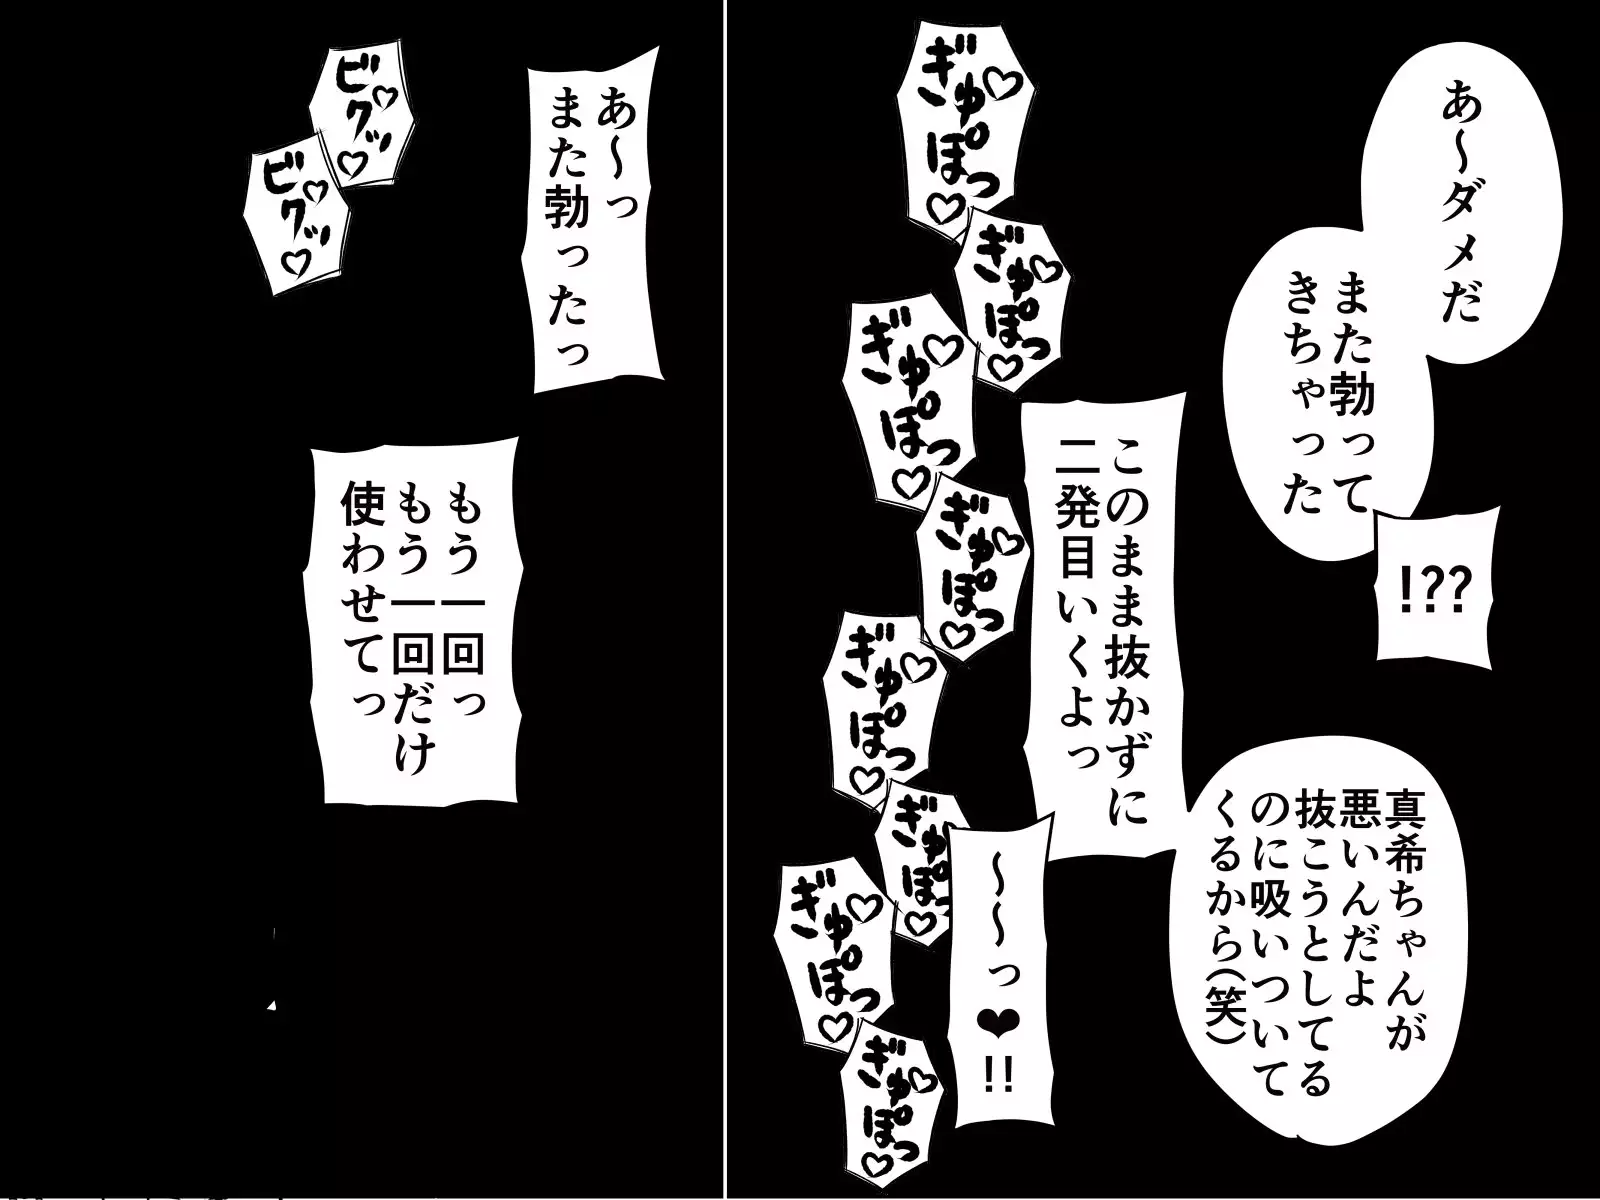 あ～ダメだ
また勃って
きちゃった
!??
真希ちゃんが
悪いんだよ
抜こうとしてる
のに吸いついて
くるから(笑)
このまま抜かずに
二発目いくよっ
ぎゅぽっ♡
ぎゅぽっ♡
ぎゅぽっ♡
ぎゅぽっ♡
ぎゅぽっ♡
ぎゅぽっ♡
ぎゅぽっ♡
ぎゅぽっ♡
～～っ❤!!
あ～っ
また勃ったっ
ビクッ♡
ビクッ♡
もう一回っ
もう一回だけ
使わせてっ